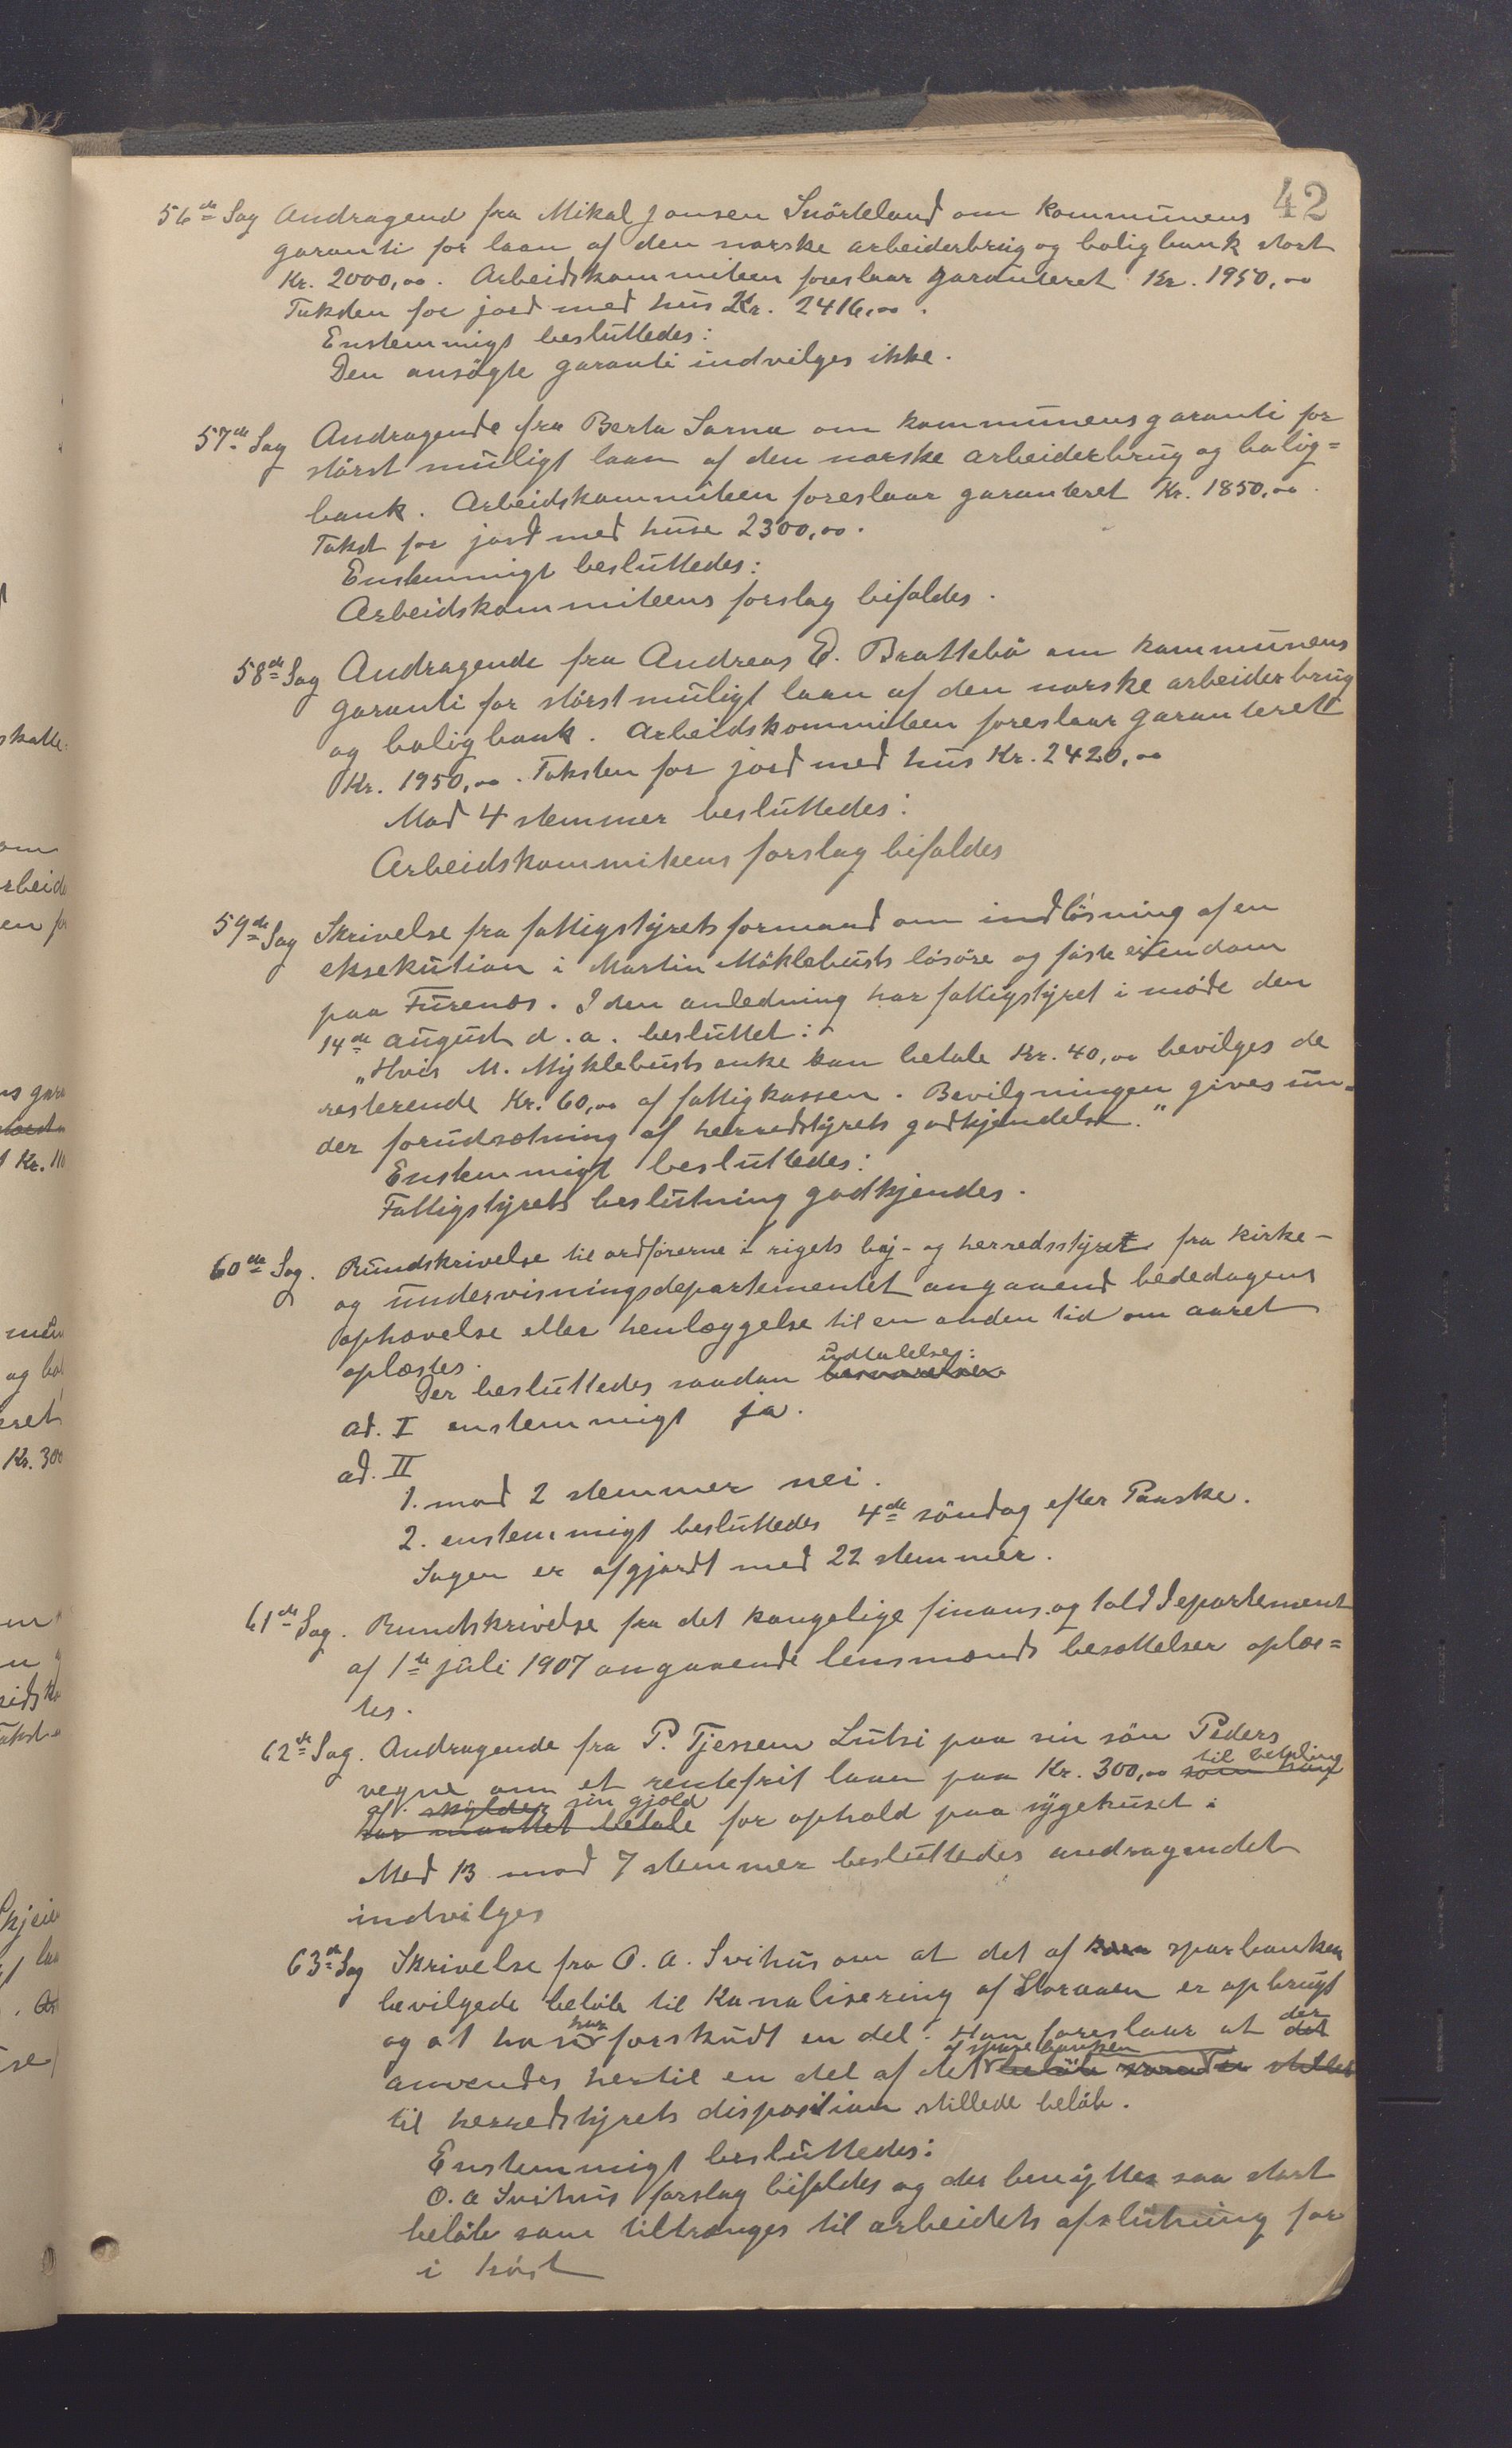 42
56de Sag Andragend fra Mikal Jonsen Snörteland om kommunens
garanti for laan af den norske arbeiderbrug og boligbank stort
Kr. 2000,00. Arbeidskommiteen foreslaar garanteret Kr. 1950,00
Taksten for jord med hus Kr. 2416,00.
Enstemmigt besluttedes:
Den ansögte garanti indvilges ikke.
57de Sag Andragende fra Berta Sarna om kommunens garanti for
störst muligt laan af den norske arbeiderbrug og bolig=
bank. Arbeidskommiteen foreslaar garanteret Kr. 1850,00.
Takst for jord med huse 2300,00.
Enstemmigt besluttedes:
Arbeidskommiteens forslag bifaldes.
58de Sag Andragende fra Andreas E. Brattebö om kommunens
garanti for störst muligt laan af den norske arbeiderbrug
og boligbank. Arbeidskommiteen foreslaar garanteret
Kr. 1950,00. Taksten for jord med hus Kr. 2420,00
Mod 4 stemmer besluttedes:
Arbeidskommiteens forslag bifaldes
59de Sag Skrivelse fra fattigstyrets formand om indlösning af en
eksekution i Martin Möklebusts lösöre og faste eiendom
paa Furenes. I den anledning har fattigstyret i möde den
14de august d.a. besluttet:
"Hvis M. Myklebusts enke kan betale Kr. 40,00 bevilges de
resterende Kr. 60,00 af fattigkassen. Bevilgningen gives un=
der forudsætning af herredstyrets godkjendelse."
Enstemmigt besluttedes:
Fattigstyrets beslutning godkjendes.
60de Sag. Rundskrivelse til ordförerne i rigets by- og herredsstyret fra kirke-
og undervisningsdepartementet angaaend bededagens
ophævelse eller henlæggelse til en anden tid om aaret
oplæstes.
Der besluttedes saadan besvarelse udtalelse:
ad. I enstemmigt ja.
ad. II
1. mod 2 stemmer nei.
2. enstemmigt besluttedes 4de söndag efter Paaske.
Sagen er afgjordt med 22 stemmer.
61de Sag. Rundskrivelse fra det kongelige finans. og tolddepartement
af 1ste juli 1907 angaaende lensmænds besættelser oplæs=
tes.
62de Sag. Andragende fra P. Tjessem Lutsi paa sin sön Peders
vegne om et rentefrit laan paa Kr. 300,00 som han til betaling
af skylder sin gjæld
har maattet betale for ophold paa sygehuset i
Med 13 mod 7 stemmer besluttedes andragendet
indvilges
63de Sag Skrivelse fra O. A. Svihus om at det af sparbanken
bevilgede belöb til Kanalisering af Storaaen er opbrugt
og at han har forskudt en del. Han foreslaar at det der
anvendes hertil en del af det af sparebanken belöb
til herredstyrets disposition stillede belöb.
Enstemmigt besluttedes:
O. A Svihus forslag bifaldes og der benyttes saa stort
belöb som tiltrænges til arbeidets afslutning for
i höst